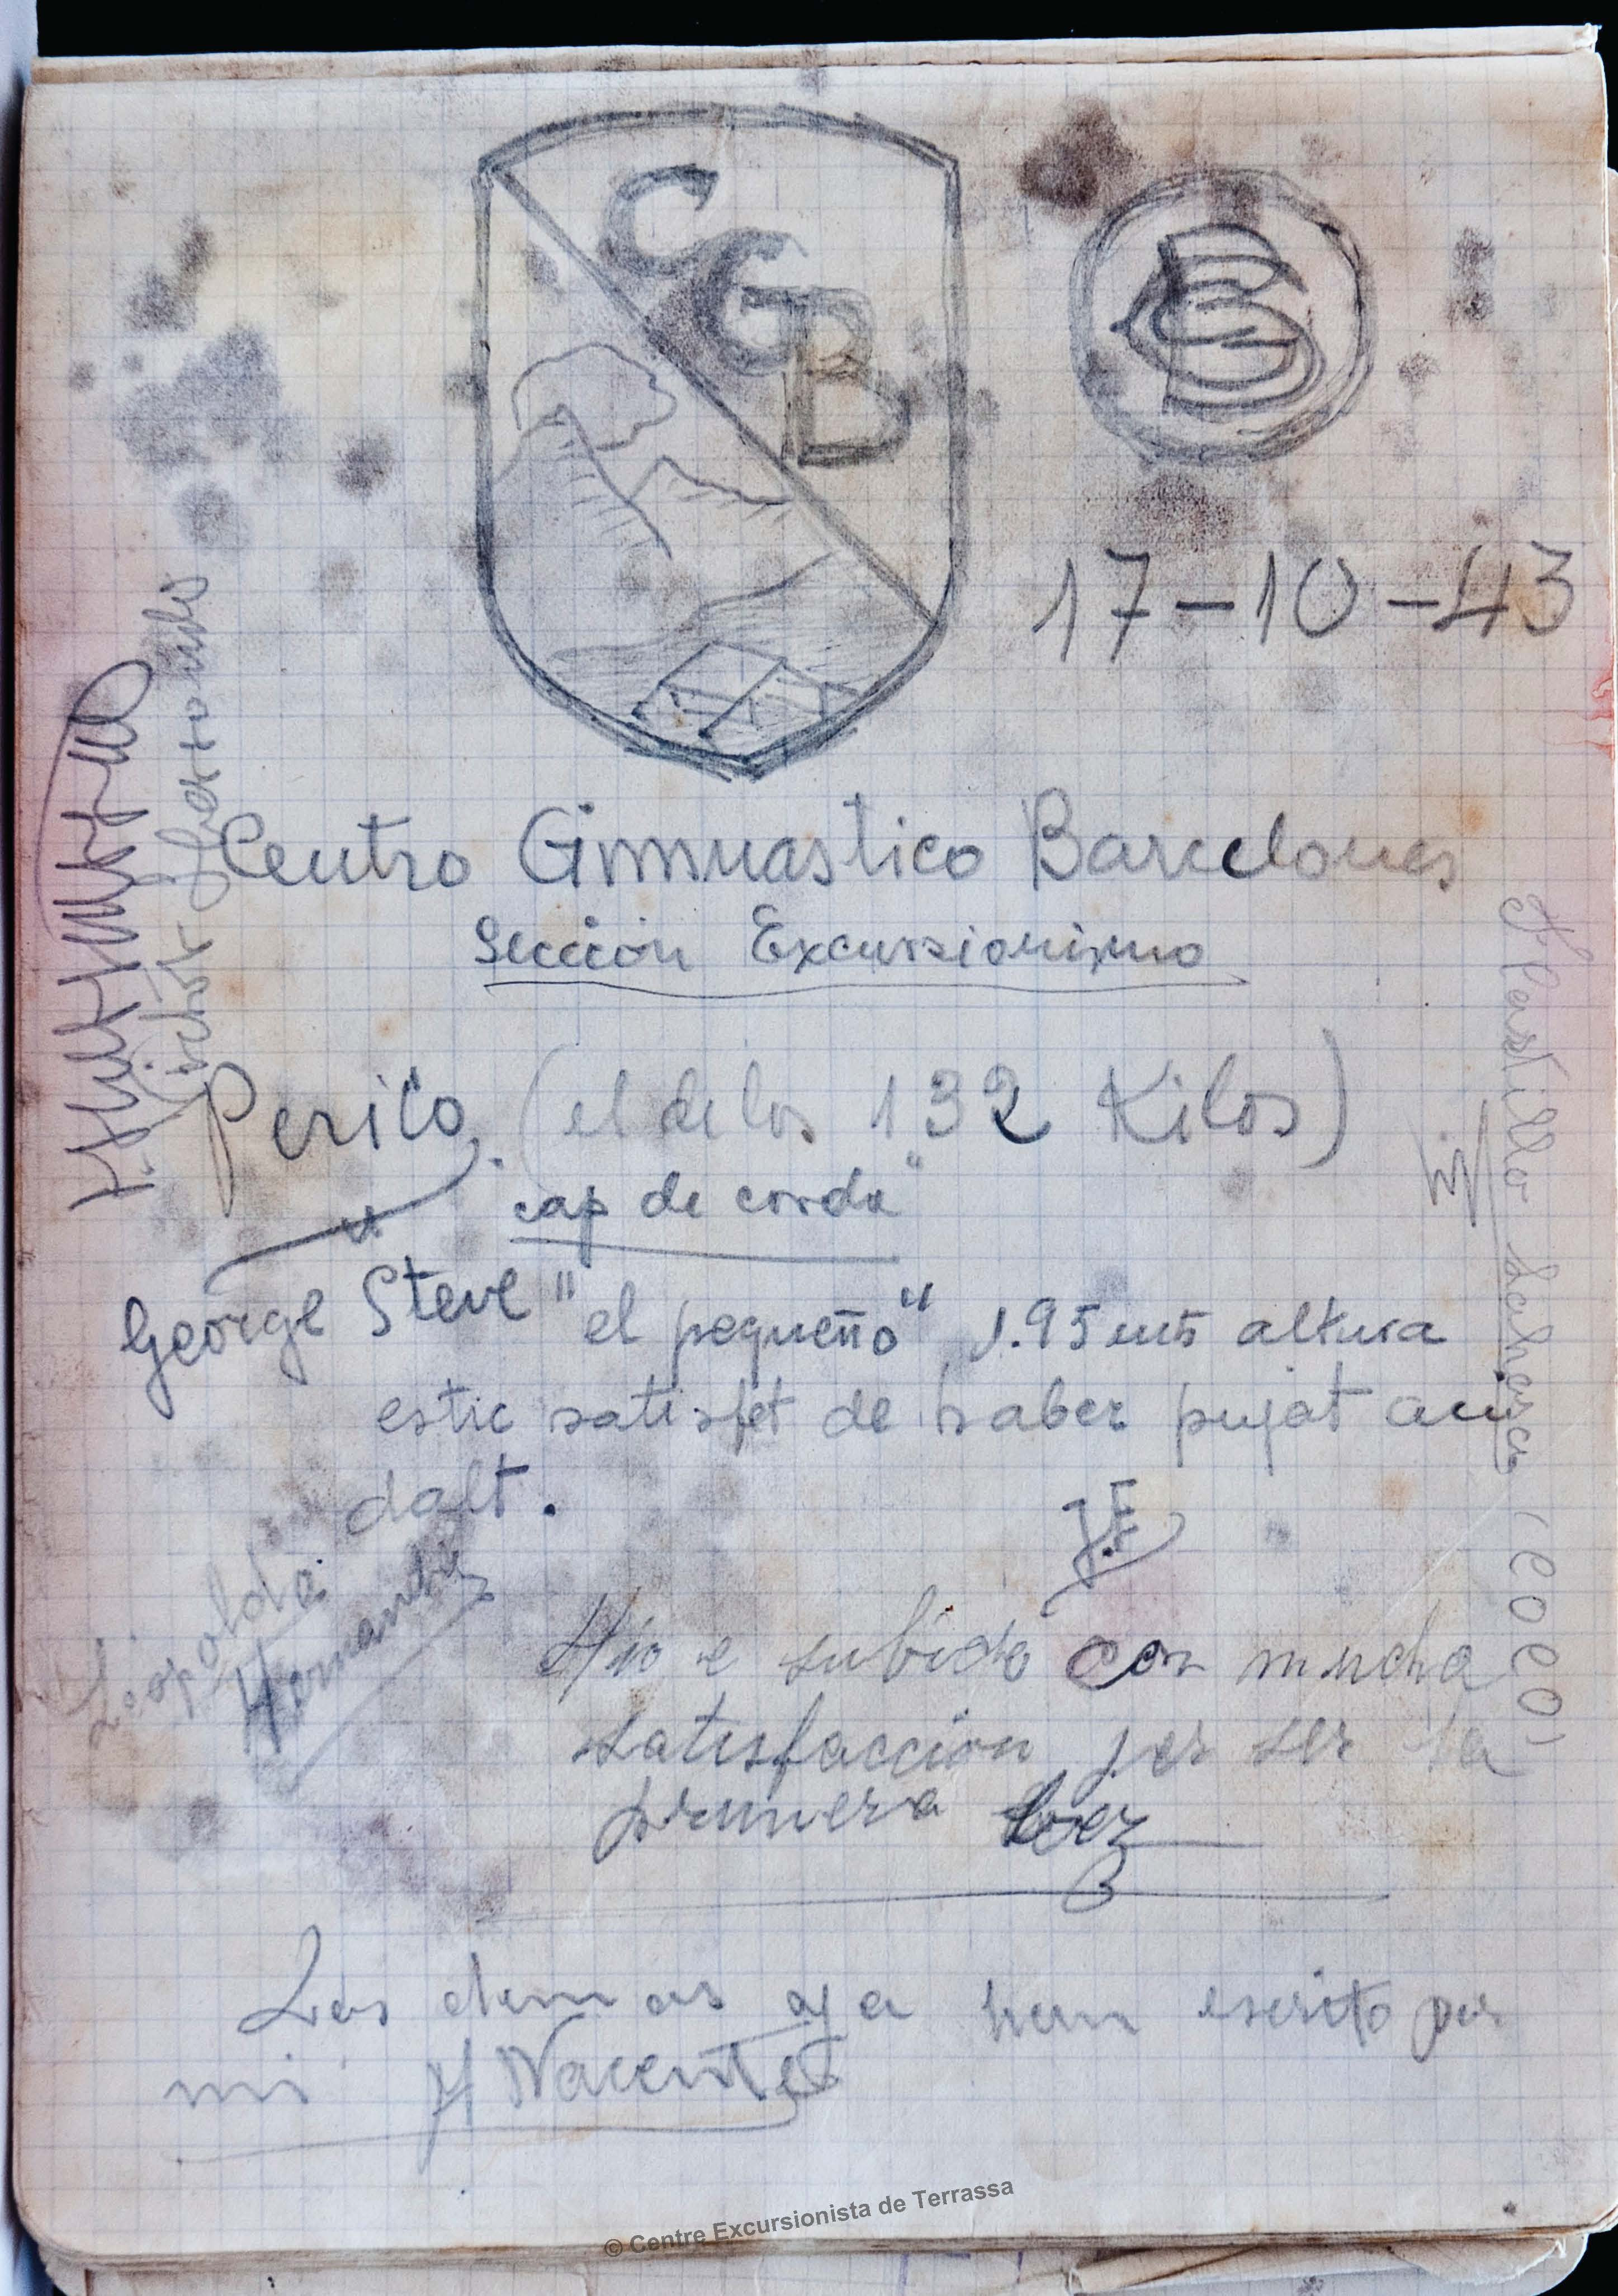 CGB
17-10-43
Centro Gimnuastico Barcelones
Sección Excursionismo
Perico (el de los 132 Kilos)
"cap de corda"
George Steve "el pequeño" 1.95 mts altura
estic satisfet de haber pujat aci
dalt.
J.E
Leopoldo
Hernandez
Castillo
(COCO)
e subido con mucha
satisfaccion per ser la
primera
Los demas ya han escrito por
mi
© Centre Excursionista de Terrassa